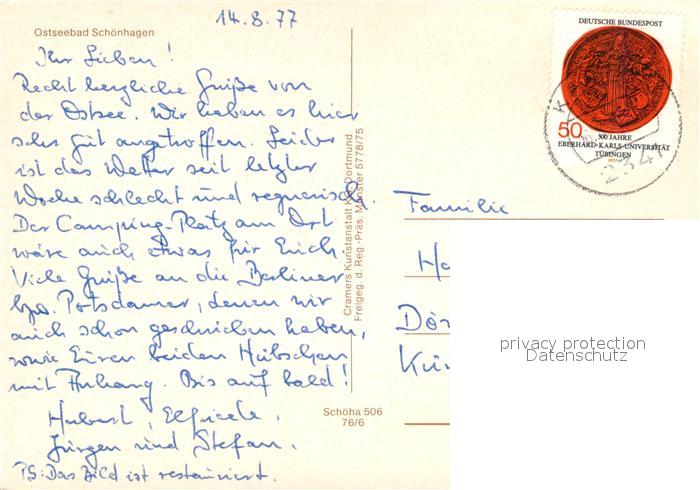 14.8.77
Ostseebad Schönhagen
Ihr Lieben!
Recht herzliche Grüße von
der Ostsee. Wir haben es hier
sehr gut angetroffen. Leider
ist das Wetter seit letzter
Woche schlecht und regnerisch.
Der Camping-Platz am Ort
wäre auch etwas für Euch.
Viele Grüße an die Berliner
bzw. Potsdamer, denen wir
auch schon geschrieben haben,
sowie Euren beiden Hübschen
mit Anhang. Bis auf bald!
Hubert,
Jürgen und Stefan.
PS: Das Bild ist restauriert.
Cramers Kunstanstalt KG, Dortmund
Freigeg. d. Reg.-Präs. Münster 5778/75
Schöha 506
76/6
DEUTSCHE BUNDESPOST
50
500 JAHRE
EBERHARD-KARLS-UNIVERSITÄT
TÜBINGEN
1977
2341
Familie
privacy protection
Datenschutz